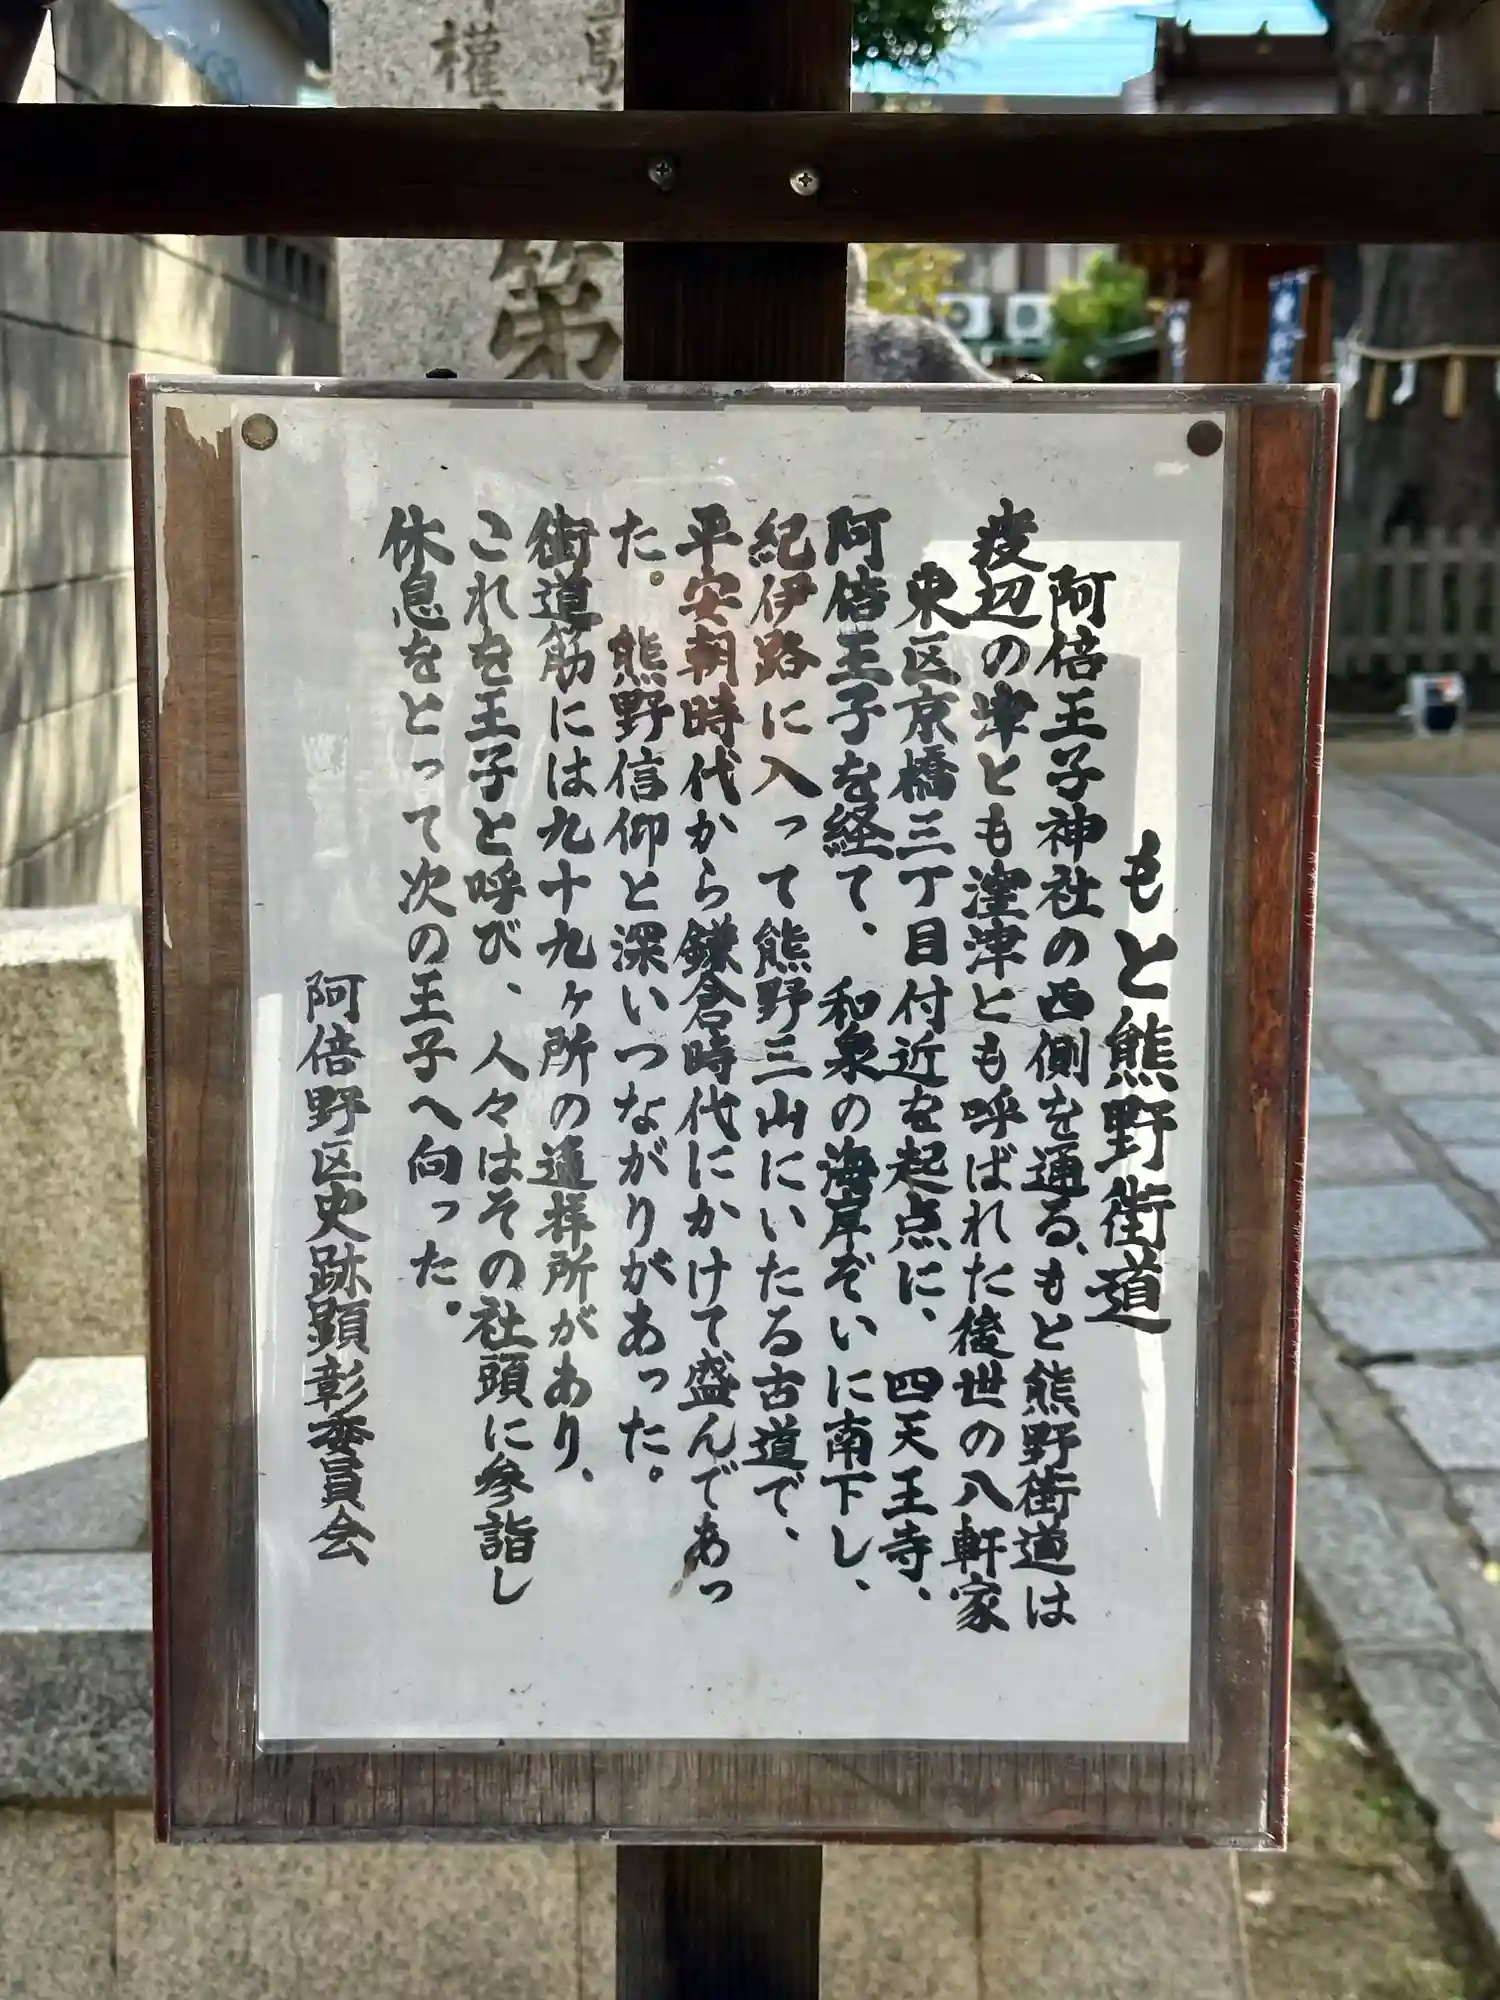 もと熊野街道
阿倍王子神社の西側を通る、もと熊野街道は
渡辺の津とも窪津とも呼ばれた後世の八軒家
東区京橋三丁目付近を起点に、四天王寺、
阿倍王子を経て、和泉の海岸ぞいに南下し、
紀伊路に入って熊野三山にいたる古道で、
平安朝時代から鎌倉時代にかけて盛んであっ
た。熊野信仰と深いつながりがあった。
街道筋には九十九ヶ所の遥拝所があり、
これを王子と呼び、人々はその社頭に参詣し
休息をとって次の王子へ向った。
阿倍野区史跡顕彰委員会
權
第